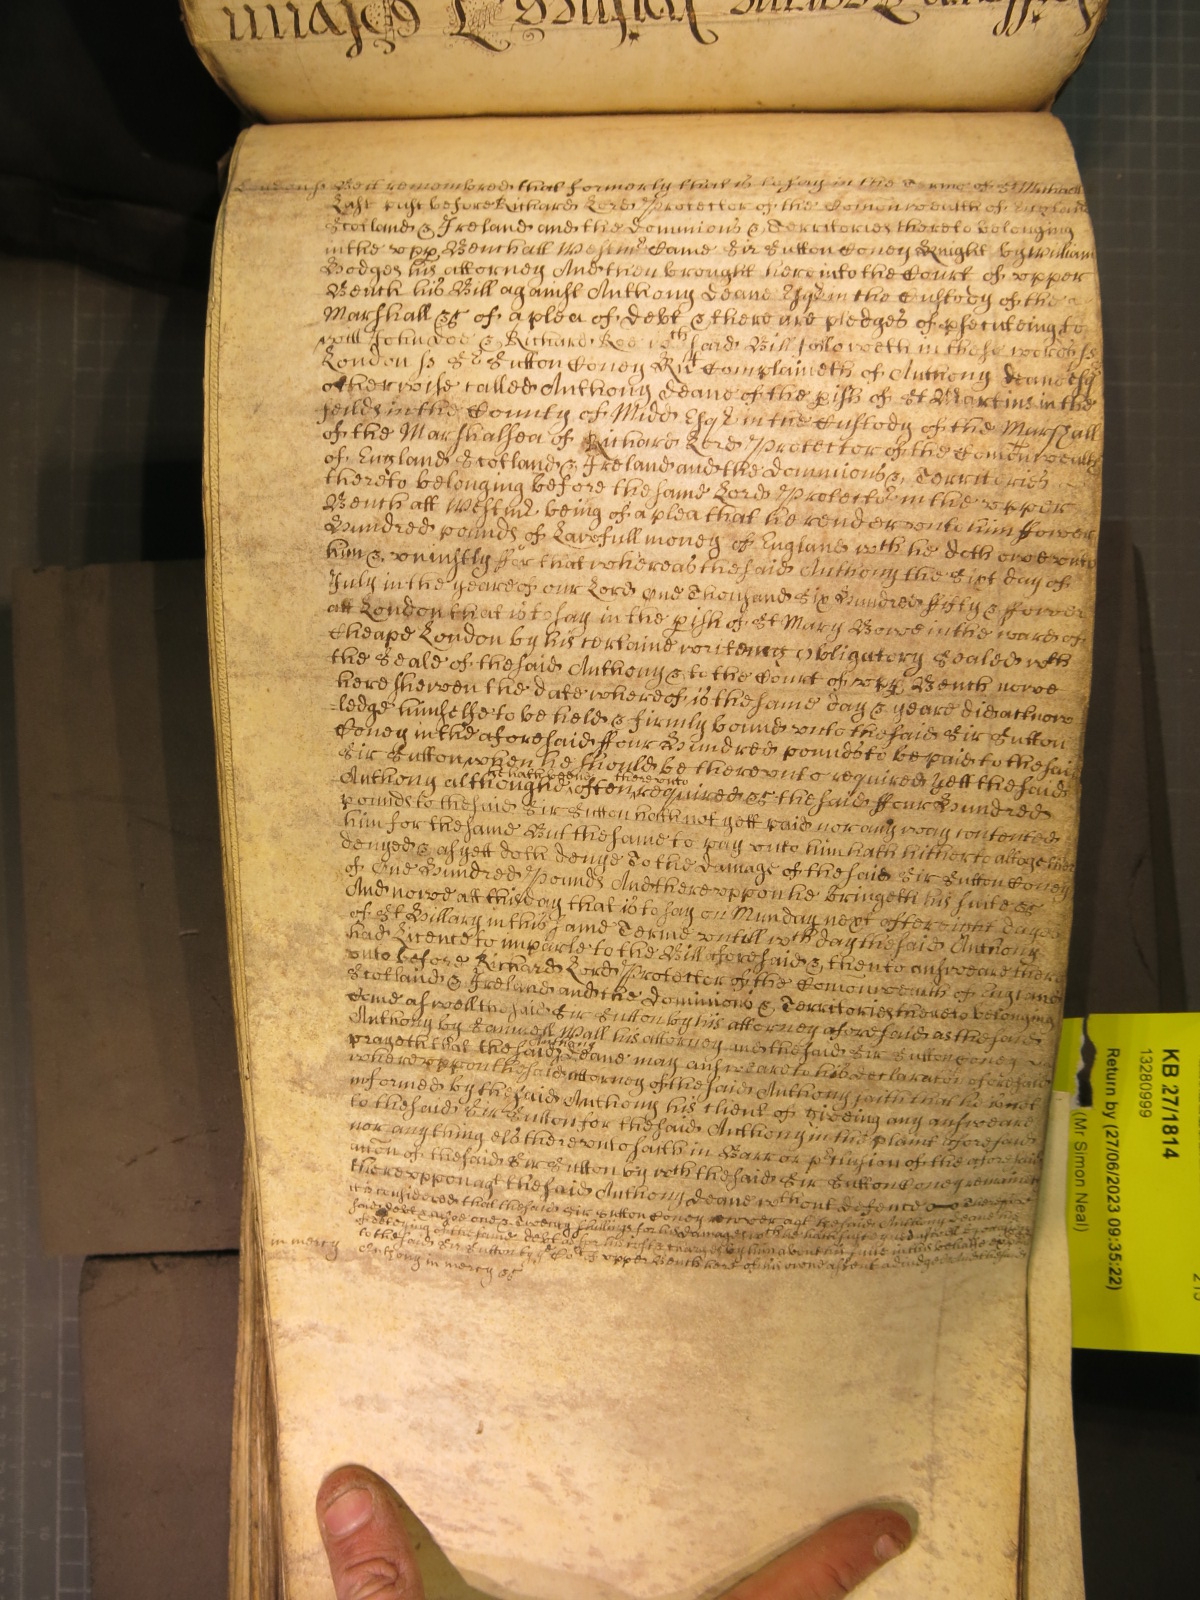 London ss Bee it remembred that formerly that is to say in the Terme of St Michaell
Last past before Richard Lord Protector of the Comonwealth of England
Scotland & Ireland and the Dominions & Territories thereto belonging
in the upp Bench att Westmr Came Sir Sutton Coney Knight by William
Hodges his attorney And then brought here into the Court of upper
Bench his Bill against Anthony Deane Esqr in the Custody of the
Marshall &c of a plea of debt & there are pledges of psecuteing to
witt John Doe & Richard Roe wch said Bill followeth in these words ss
London ss Sr Sutton Coney Kt Complaineth of Anthony Deane Esq
otherwise called Anthony Deane of the pish of St Martins in the
feilds in the County of Midd Esqr in the Custody of the Marshall
of the Marshalsea of Richard Lord Protector of the Comonwealth
of England Scotland & Ireland and the Dominions & Territories
thereto belonging before the same Lord Protector in the upper
Bench att Westmr being of a plea that he render unto him ffower
Hundred pounds of Lawfull money of England wch he doth owe unto
him & uniustly ffor that whereas the said Anthony the First day of
July in the yeare of our Lord One Thousand Six Hundred ffifty & ffower
att London that is to say in the pish of St Mary Bowe in the ward of
Cheape London by his certaine writeing Obligatory Sealed with
the Seale of the said Anthony & to the Court of upp Bench nowe
here shewen the date whereof is the same day & yeare did acknow
-ledge himselfe to be held & firmly bound unto the said Sir Sutton
Coney in the aforesaid ffour Hundred pounds to be paid to the said
Sir Sutton when he should be thereunto required Yett the said
Anthony although he hath beene often thereunto required &c the said ffour Hundred
pounds to the said Sir Sutton hath not yett paid nor any way contented
him for the same But the same to pay unto him hath hitherto altogether
denyed & as yett doth denye To the damage of the said Sir Sutton Coney
of One Hundred Pounds And thereuppon he bringeth his suite &c
And nowe att this day that is to say on Munday next after eight dayes
of St Hillary in this same Terme untill wch day the said Anthony
had Licence to imparle to the Bill aforesaid & then to answeare there
unto before Richard Lord Protector of the Comonwealth of England
Scotland & Ireland and the Dominions & Territories thereto belonging
Come aswell the said Sir Sutton by his attorney aforesaid as the said
Anthony by Samuell Wall his attorney and the said Sir Sutton Coney
prayeth that the said Anthony Deane may answeare to his declaracon aforesaid
whereuppon the said attorney of the said Anthony saith that he is not
informed by the said Anthony his client of giveing any answeare
to the said Sir Sutton for the said Anthony in the plaint aforesaid
nor any thing els thereunto saith in Barr or pclusion of the aforesaid
accon of the said Sir Sutton by wch the said Sir Sutton Coney remaineth
thereuppon agt the said Anthony Deane without defence
it is considered that the said Sir Sutton Coney recover agt the said Anthony Deane his
said debt & alsoe Twenty Shillings for his damages
of the same debt as for his costs & charges by him about his suite in this behalfe
in mercy to the said Sir Sutton by the Court of upper Bench here of his owne assent adiudged
Anthony in mercy &c
KB 27/1814
13280999
Return by (27/06/2023 09:35:22)
(Mr Simon Neal)